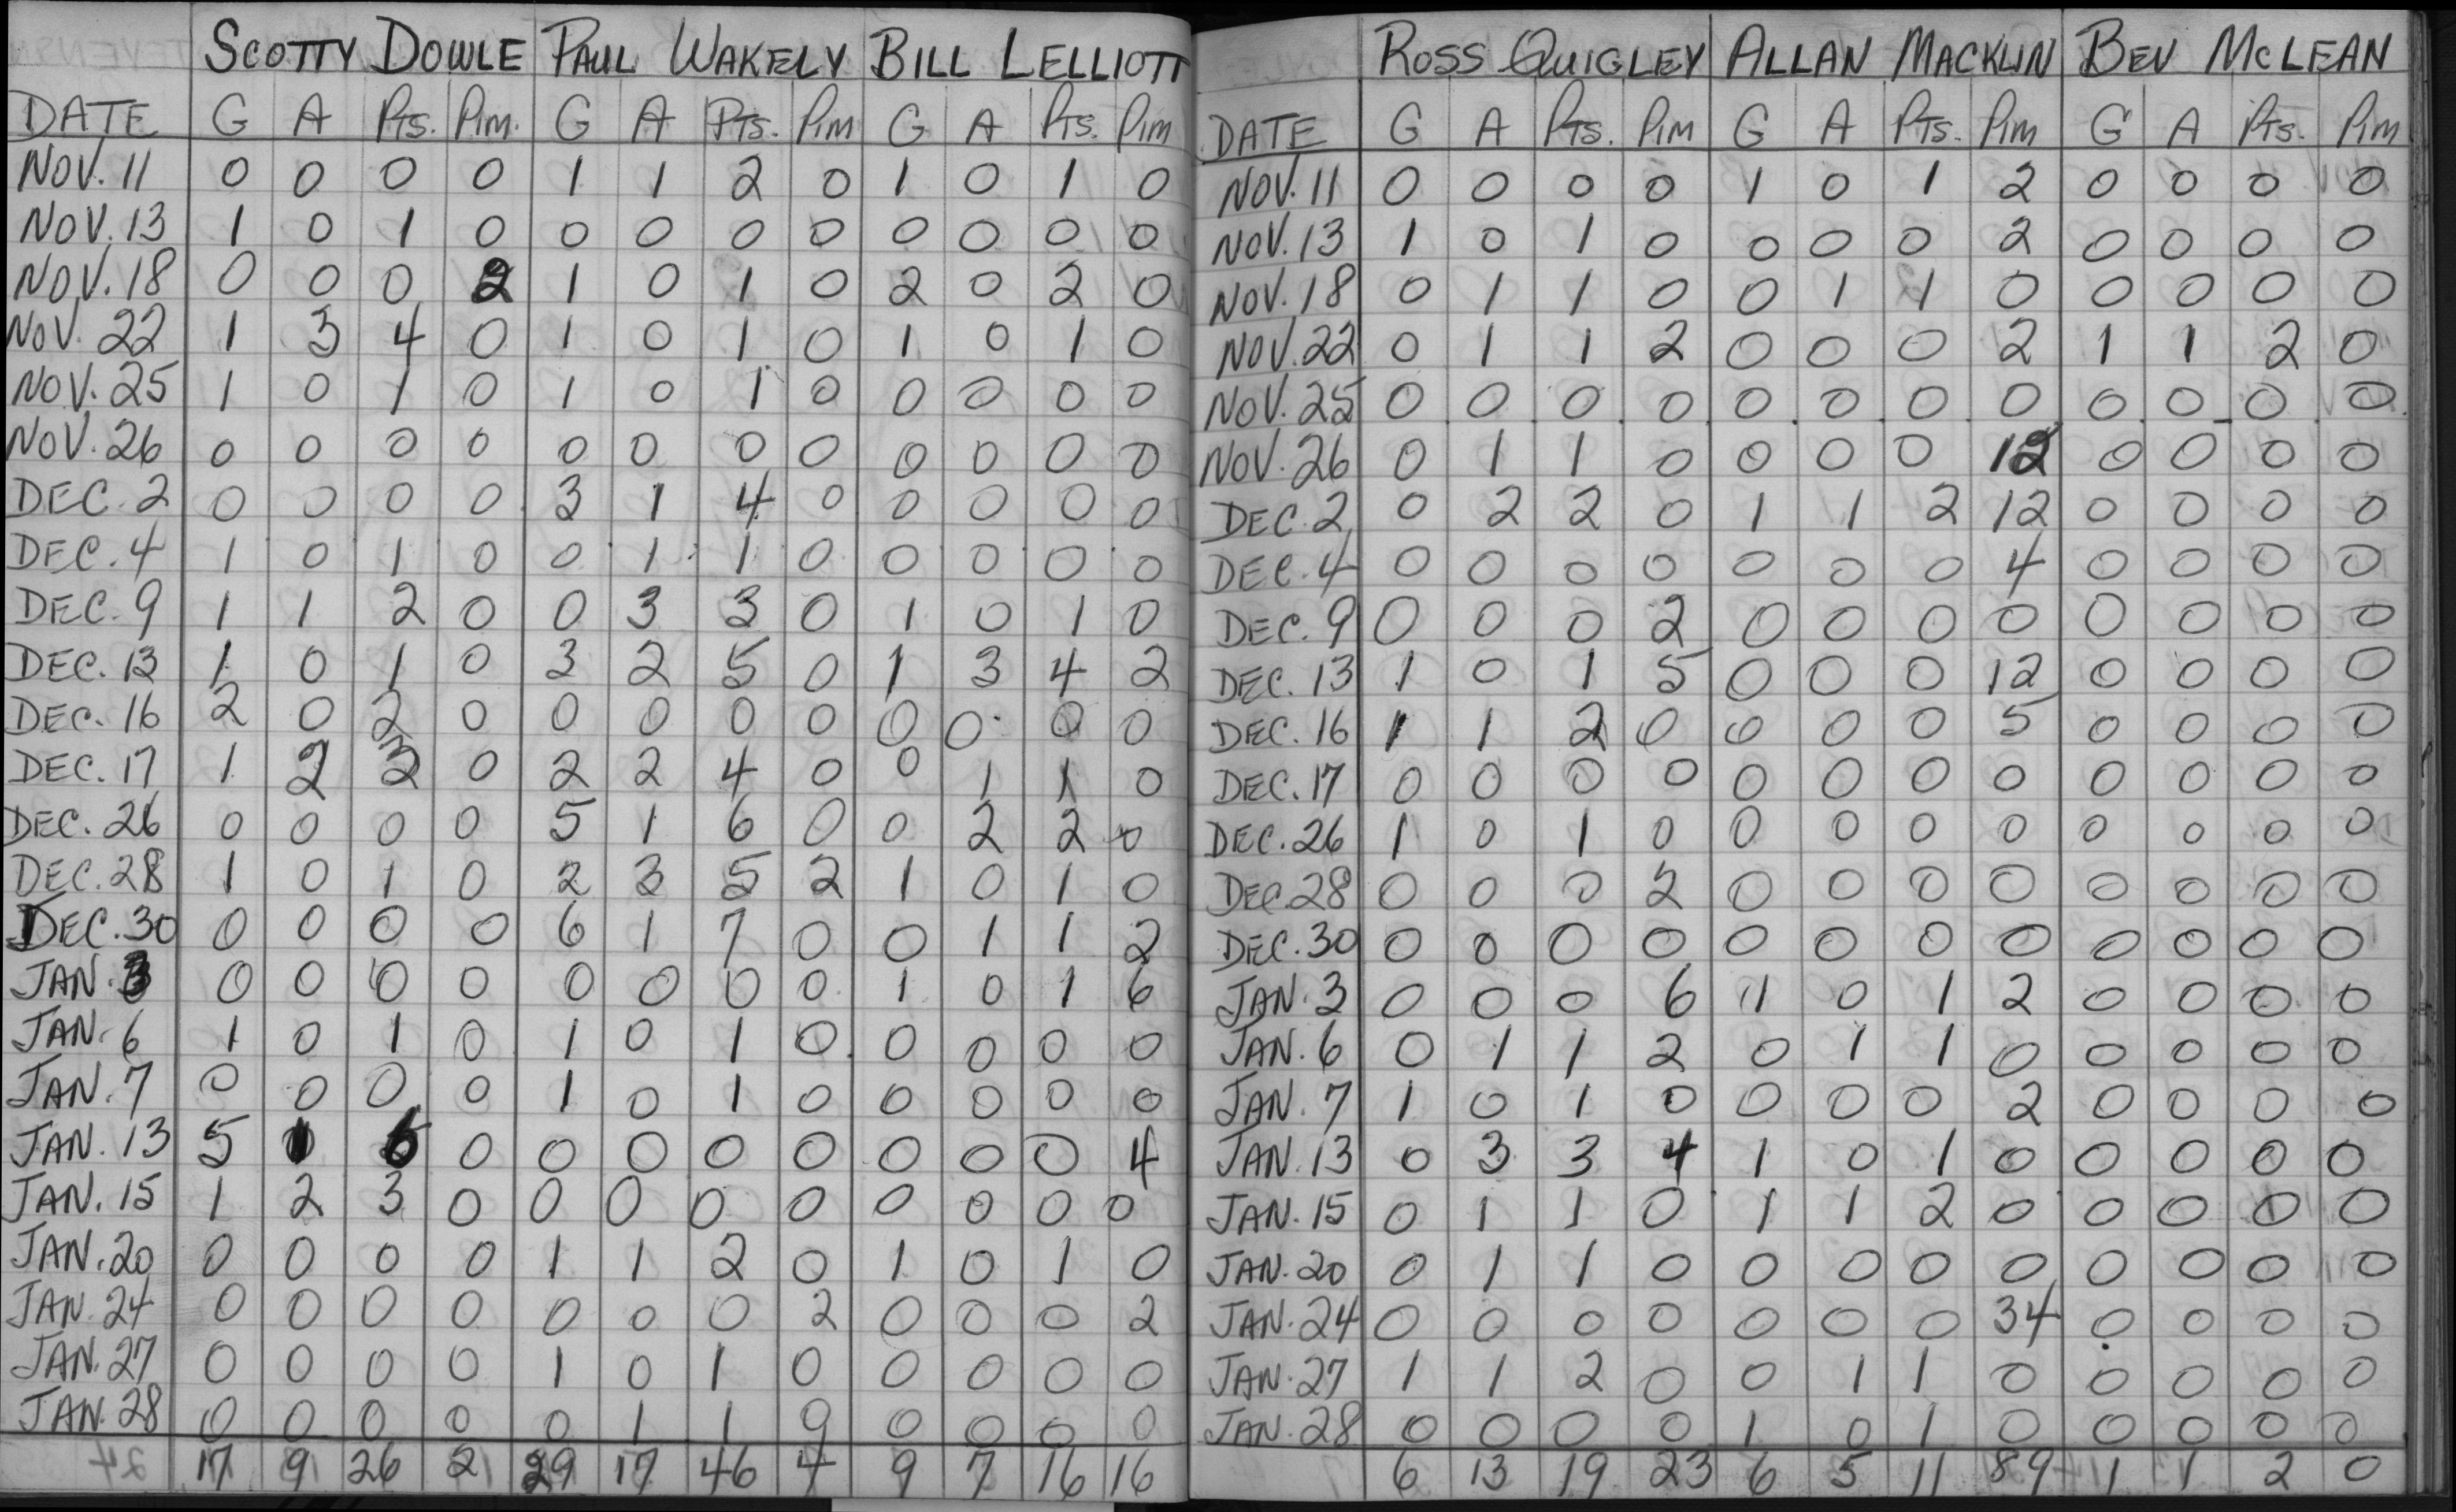 SCOTTY DOWLE PAUL WAKELY BILL LELLIOTT
DATE G A Pts. Pim. G A Pts. Pim G A Pts. Pim
NOV. 11 0 0 0 0 1 1 2 0 1 0 1 0
NOV. 13 1 0 1 0 0 0 0 0 0 0 0 0
NOV. 18 0 0 0 2 1 0 1 0 2 0 2 0
NOV. 22 1 3 4 0 1 0 1 0 1 0 1 0
NOV. 25 1 0 1 0 1 0 1 0 0 0 0 0
NOV. 26 0 0 0 0 0 0 0 0 0 0 0 0
DEC. 2 0 0 0 0 3 1 4 0 0 0 0 0
DEC. 4 1 0 1 0 0 1 1 0 0 0 0 0
DEC. 9 1 1 2 0 0 3 3 0 1 0 1 0
DEC. 13 1 0 1 0 3 2 5 0 1 3 4 2
DEC. 16 2 0 2 0 0 0 0 0 0 0 0 0
DEC. 17 1 2 3 0 2 2 4 0 0 1 1 0
DEC. 26 0 0 0 0 5 1 6 0 0 2 2 0
DEC. 28 1 0 1 0 2 3 5 2 1 0 1 0
DEC. 30 0 0 0 0 6 1 7 0 0 1 1 2
JAN. 3 0 0 0 0 0 0 0 0 1 0 1 6
JAN. 6 1 0 1 0 1 0 1 0 0 0 0 0
JAN. 7 0 0 0 0 1 0 1 0 0 0 0 0
JAN. 13 5 1 6 0 0 0 0 0 0 0 0 4
JAN. 15 1 2 3 0 0 0 0 0 0 0 0 0
JAN. 20 0 0 0 0 1 1 2 0 1 0 1 0
JAN. 24 0 0 0 0 0 0 0 2 0 0 0 2
JAN. 27 0 0 0 0 1 0 1 0 0 0 0 0
JAN. 28 0 0 0 0 0 1 1 0 0 0 0 0
17 9 26 2 29 17 46 4 9 7 16 16
ROSS QUIGLEY ALLAN MACKLIN BEV MCLEAN
DATE G A Pts. Pim G A Pts. Pim G A Pts. Pim
NOV. 11 0 0 0 0 1 0 1 2 0 0 0 0
NOV. 13 1 0 1 0 0 0 0 2 0 0 0 0
NOV. 18 0 1 1 0 0 1 1 0 0 0 0 0
NOV. 22 0 1 1 2 0 0 0 2 1 1 2 0
NOV. 25 0 0 0 0 0 0 0 0 0 0 0 0
NOV. 26 0 1 1 0 0 0 0 12 0 0 0 0
DEC. 2 0 2 2 0 1 1 2 12 0 0 0 0
DEC. 4 0 0 0 0 0 0 0 4 0 0 0 0
DEC. 9 0 0 0 2 0 0 0 0 0 0 0 0
DEC. 13 1 0 1 5 0 0 0 12 0 0 0 0
DEC. 16 1 1 2 0 0 0 0 5 0 0 0 0
DEC. 17 0 0 0 0 0 0 0 0 0 0 0 0
DEC. 26 1 0 1 0 0 0 0 0 0 0 0 0
DEC 28 0 0 0 2 0 0 0 0 0 0 0 0
DEC. 30 0 0 0 0 0 0 0 0 0 0 0 0
JAN. 3 0 0 0 6 1 0 1 2 0 0 0 0
JAN. 6 0 1 1 2 0 1 1 0 0 0 0 0
JAN. 7 1 0 1 0 0 0 0 2 0 0 0 0
JAN. 13 0 3 3 4 1 0 1 0 0 0 0 0
JAN. 15 0 1 1 0 1 1 2 0 0 0 0 0
JAN. 20 0 1 1 0 0 0 0 0 0 0 0 0
JAN. 24 0 0 0 0 0 0 0 34 0 0 0 0
JAN. 27 1 1 2 0 0 1 1 0 0 0 0 0
JAN. 28 0 0 0 0 1 0 1 0 0 0 0 0
6 13 19 23 6 5 11 89 1 1 2 0